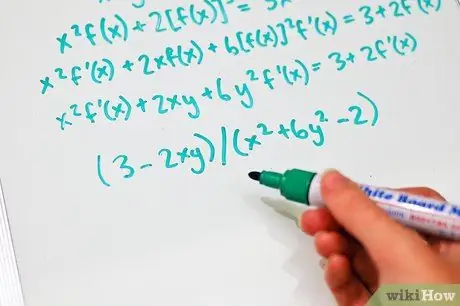 x²f(x) + 2[f(x)]³ = 3x
x²f'(x) + 2xf(x) + 6[f(x)]²f'(x) = 3 + 2f'(x)
x²f'(x) + 2xy + 6y²f'(x) = 3 + 2f'(x)
(3 - 2xy)/(x² + 6y² - 2)
White Board M
wikiHow